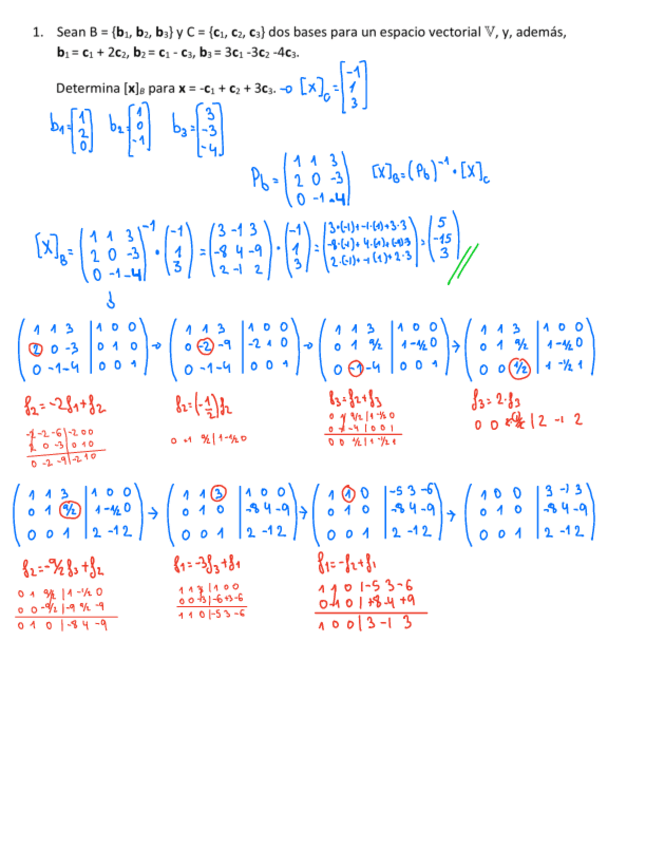 1. Sean B = {b₁, b₂, b₃} y C = {c₁, c₂, c₃} dos bases para un espacio vectorial 𝕍, y, además,
b₁ = c₁ + 2c₂, b₂ = c₁ - c₃, b₃ = 3c₁ -3c₂ -4c₃.
Determina [x]B para x = -c₁ + c₂ + 3c₃. → [x]C = [-1 1 3]
b₁=[1 2 0] b₂=[1 0 -1] b₃=[3 -3 -4]
Pb = (1 1 3 / 2 0 -3 / 0 -1 -4) [x]B = (Pb)⁻¹ · [x]C
[x]B = (1 1 3 / 2 0 -3 / 0 -1 -4)⁻¹ · (-1 / 1 / 3) = (3 -1 3 / -8 4 -9 / 2 -1 2) · (-1 / 1 / 3) = (3·(-1)+-1·(1)+3·3 / -8·(-1)+4·(1)+(-9)·3 / 2·(-1)+-1(1)+2·3) = (5 / -15 / 3)
(1 1 3 | 1 0 0 / 2 0 -3 | 0 1 0 / 0 -1 -4 | 0 0 1) → (1 1 3 | 1 0 0 / 0 -2 -9 | -2 1 0 / 0 -1 -4 | 0 0 1) → (1 1 3 | 1 0 0 / 0 1 9/2 | 1 -1/2 0 / 0 -1 -4 | 0 0 1) → (1 1 3 | 1 0 0 / 0 1 9/2 | 1 -1/2 0 / 0 0 1/2 | 1 -1/2 1)
f₂=-2f₁+f₂ f₂=(-1/2)f₂ f₃=f₂+f₃ f₃=2·f₃
-2 -2 -6 | -2 0 0
2 0 -3 | 0 1 0
0 -2 -9 | -2 1 0
0 +1 9/2 | 1 -1/2 0
0 1 9/2 | 1 -1/2 0
0 -1 -4 | 0 0 1
0 0 1/2 | 1 -1/2 1
| 2 -1 2
(1 1 3 | 1 0 0 / 0 1 9/2 | 1 -1/2 0 / 0 0 1 | 2 -1 2) → (1 1 3 | 1 0 0 / 0 1 0 | -8 4 -9 / 0 0 1 | 2 -1 2) → (1 1 0 | -5 3 -6 / 0 1 0 | -8 4 -9 / 0 0 1 | 2 -1 2) → (1 0 0 | 3 -1 3 / 0 1 0 | -8 4 -9 / 0 0 1 | 2 -1 2)
f₂=-9/2f₃+f₂ f₁=-3f₃+f₁ f₁=-f₂+f₁
0 1 9/2 | 1 -1/2 0
0 0 -9/2 | -9 9/2 -9
0 1 0 | -8 4 -9
1 1 3 | 1 0 0
0 0 -3 | -6 +3 -6
1 1 0 | -5 3 -6
1 1 0 | -5 3 -6
0 -1 0 | +8 -4 +9
1 0 0 | 3 -1 3